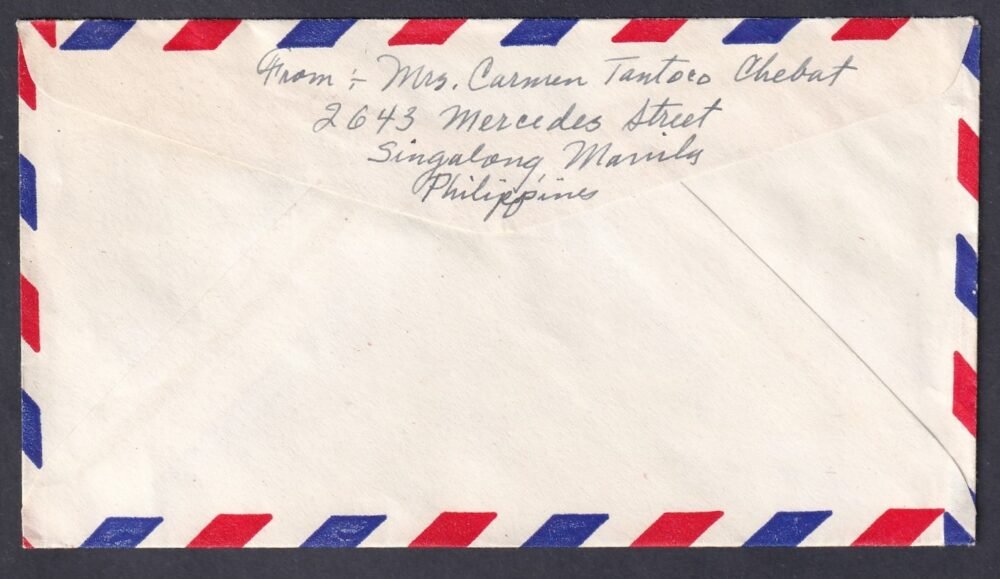 From :- Mrs. Carmen Tantoco Chebat
2643 Mercedes Street
Singalong, Manila
Philippines